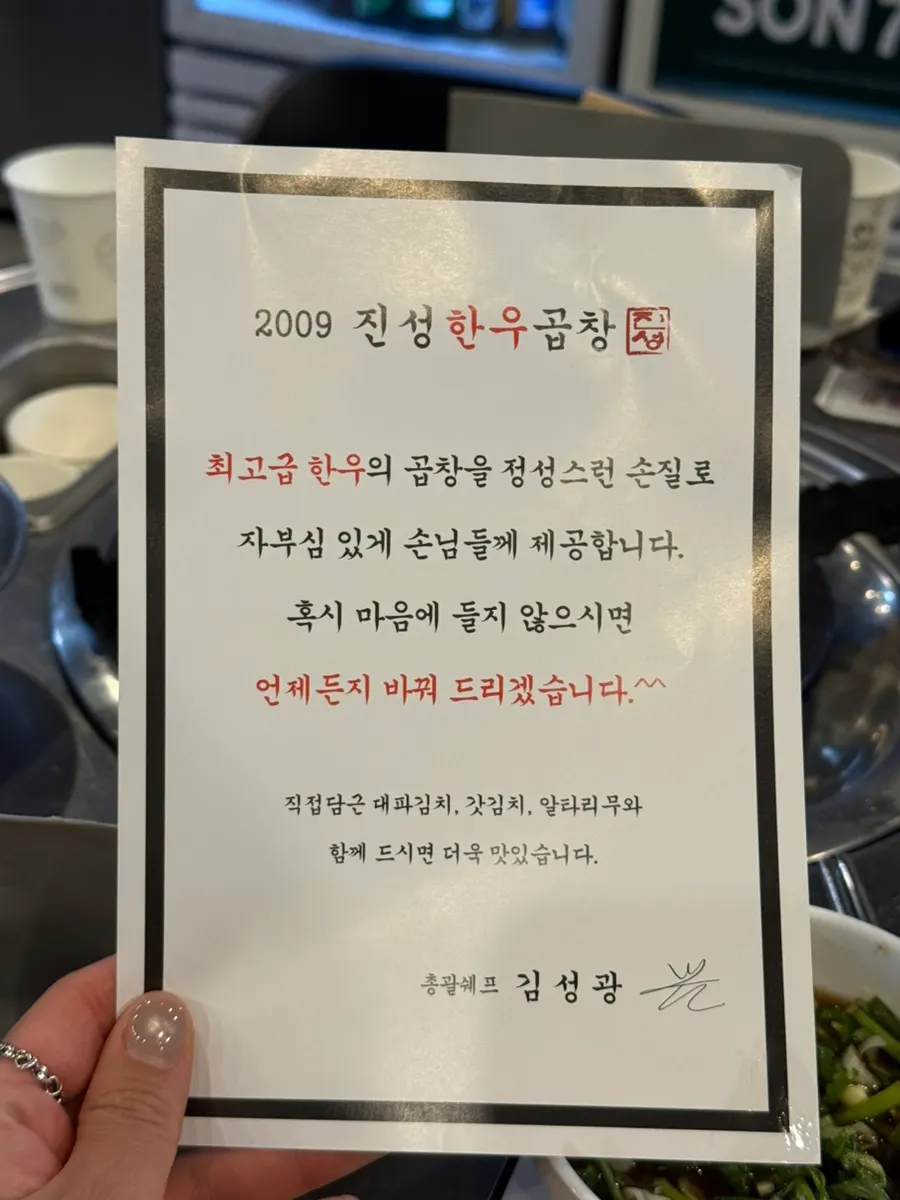 SON7
2009 진성한우곱창 진성
최고급 한우의 곱창을 정성스런 손질로
자부심 있게 손님들께 제공합니다.
혹시 마음에 들지 않으시면
언제든지 바꿔 드리겠습니다.^^
직접담근 대파김치, 갓김치, 알타리무와
함께 드시면 더욱 맛있습니다.
총괄쉐프 김성광